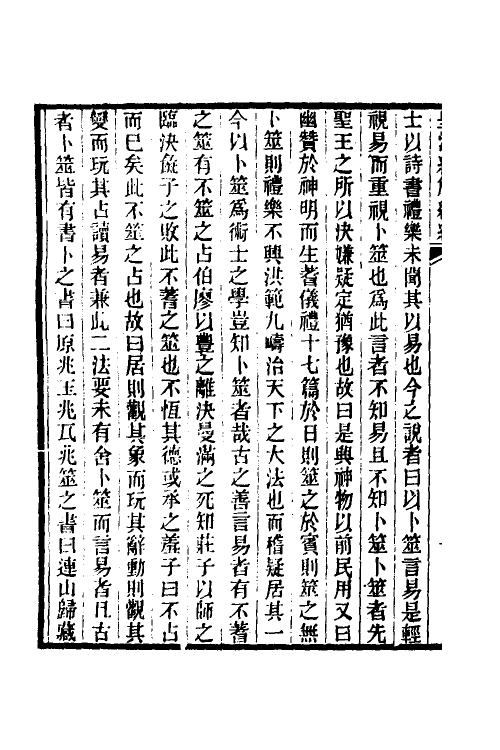 士以詩書禮樂未聞其以易也今之說者曰以卜筮言易是輕
視易而重視卜筮也爲此言者不知易且不知卜筮卜筮者先
聖王之所以決嫌疑定猶豫也故曰是興神物以前民用又曰
幽贊於神明而生蓍儀禮十七篇於日則筮之於賓則筮之無
卜筮則禮樂不興洪範九疇治天下之大法也而稽疑居其一
今以卜筮爲術士之學豈知卜筮者哉古之善言易者有不蓍
之筮有不筮之占伯廖以豐之離決曼滿之死知莊子以師之
臨決彘子之敗此不蓍之筮也不恆其德或承之羞子曰不占
而巳矣此不筮之占也故曰居則觀其象而玩其辭動則觀其
變而玩其占讀易者兼此二法要未有舍卜筮而言易者且古
者卜筮皆有書卜之書曰原兆玉兆瓦兆筮之書曰連山歸藏